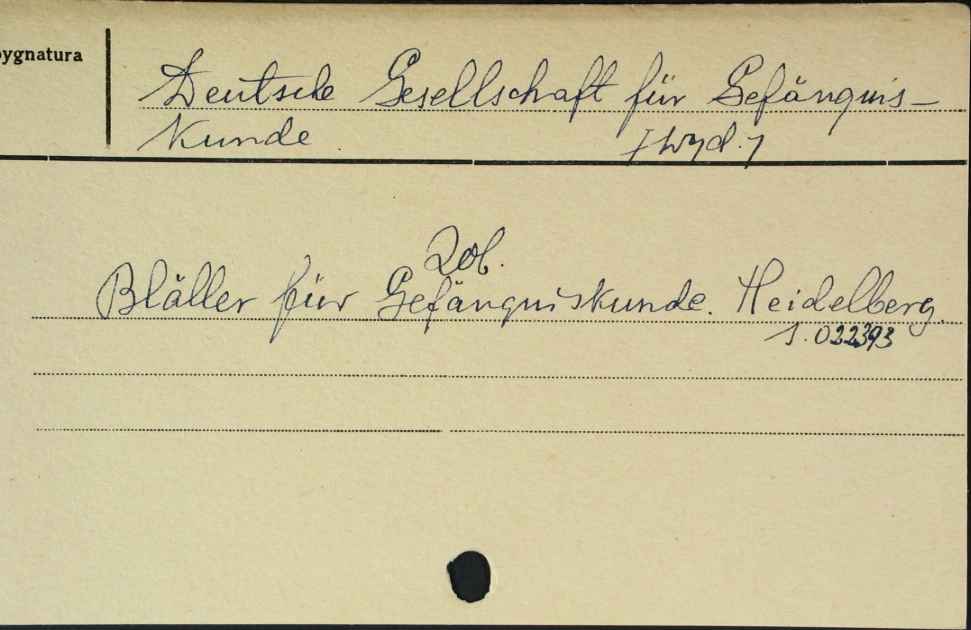 ygnatura
Deutsche Gesellschaft für Gefängnis-
kunde [wyd.]
Zob.
Blätter für Gefängniskunde. Heidelberg.
S. 022393